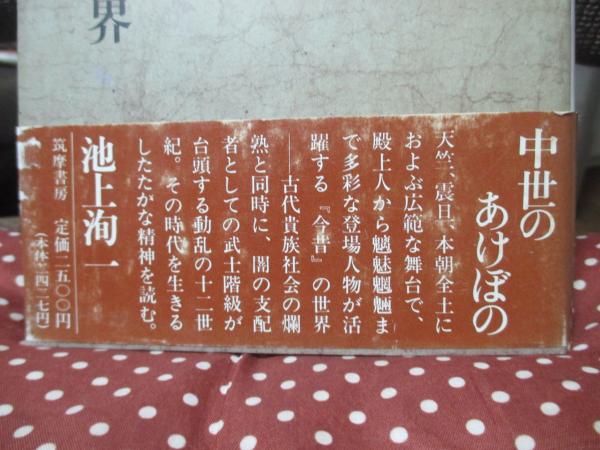 界
中世の
あけぼの
天竺、震旦、本朝全土に
およぶ広範な舞台で、
殿上人から魑魅魍魎ま
で多彩な登場人物が活
躍する『今昔』の世界
――古代貴族社会の爛
熟と同時に、闇の支配
者としての武士階級が
台頭する動乱の十二世
紀。その時代を生きる
したたかな精神を読む。
池上洵一
筑摩書房 定価二五〇〇円
(本体二四二七円)